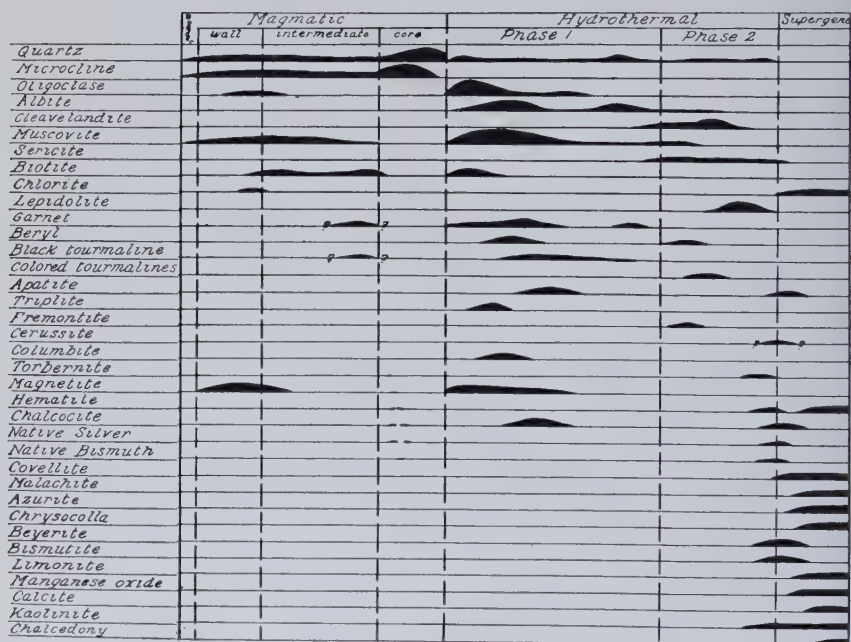 Magmatic Hydrothermal Supergene
wall intermediate core Phase 1 Phase 2
Quartz
Microcline
Oligoclase
Albite
Cleavelandite
Muscovite
Sericite
Biotite
Chlorite
Lepidolite
Garnet
? ?
Beryl
Black tourmaline
? ?
Colored tourmalines
Apatite
Triplite
Fremontite
Cerussite
? ?
Columbite
Torbernite
Magnetite
Hematite
Chalcocite
Native Silver
Native Bismuth
Covellite
Malachite
Azurite
Chrysocolla
Beyerite
Bismutite
Limonite
Manganese oxide
Calcite
Kaolinite
Chalcedony